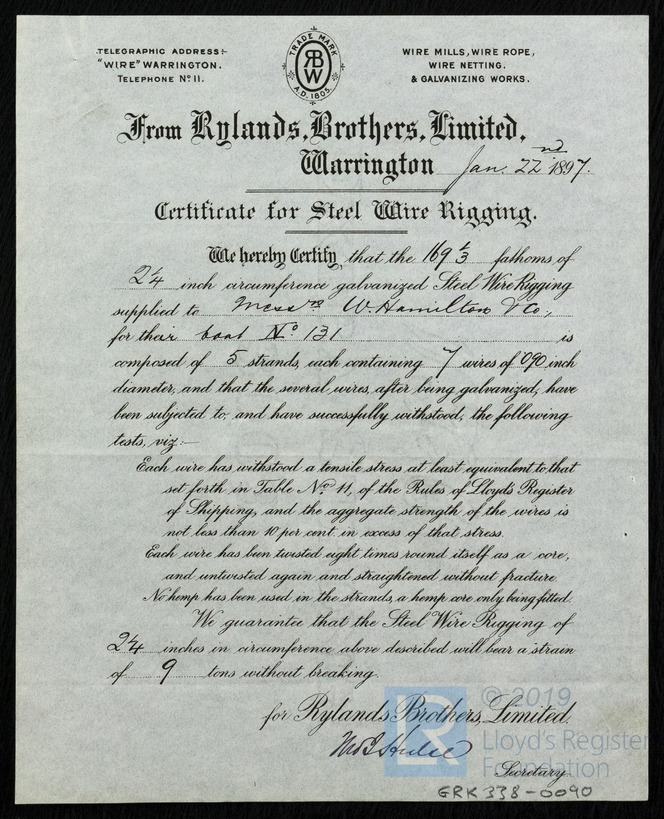 TELEGRAPHIC ADDRESS:-
"WIRE" WARRINGTON.
TELEPHONE No 11.
TRADE MARK
RB
W
A.D. 1805.
WIRE MILLS, WIRE ROPE,
WIRE NETTING.
& GALVANIZING WORKS.
From Rylands, Brothers, Limited,
Warrington Jan. 22nd 1897.
Certificate for Steel Wire Rigging.
We hereby Certify, that the 169⅓ fathoms of
2¼ inch circumference galvanized Steel Wire Rigging
supplied to Messrs W. Hamilton & Co.,
for their boat No 131 is
composed of 5 strands, each containing 7 wires of .090 inch
diameter, and that the several wires, after being galvanized, have
been subjected to, and have successfully withstood, the following
tests, viz:-
Each wire has withstood a tensile stress at least equivalent to that
set forth in Table No 11, of the Rules of Lloyd's Register
of Shipping, and the aggregate strength of the wires is
not less than 10 per cent in excess of that stress.
Each wire has been twisted eight times round itself as a core,
and untwisted again and straightened without fracture.
No hemp has been used in the strands, a hemp core only being fitted.
We guarantee that the Steel Wire Rigging of
2¼ inches in circumference above described will bear a strain
of 9 tons without breaking.
for Rylands Brothers, Limited.
Secretary.
LR
© 2019
Lloyd's Register
Foundation
GRK338-0090